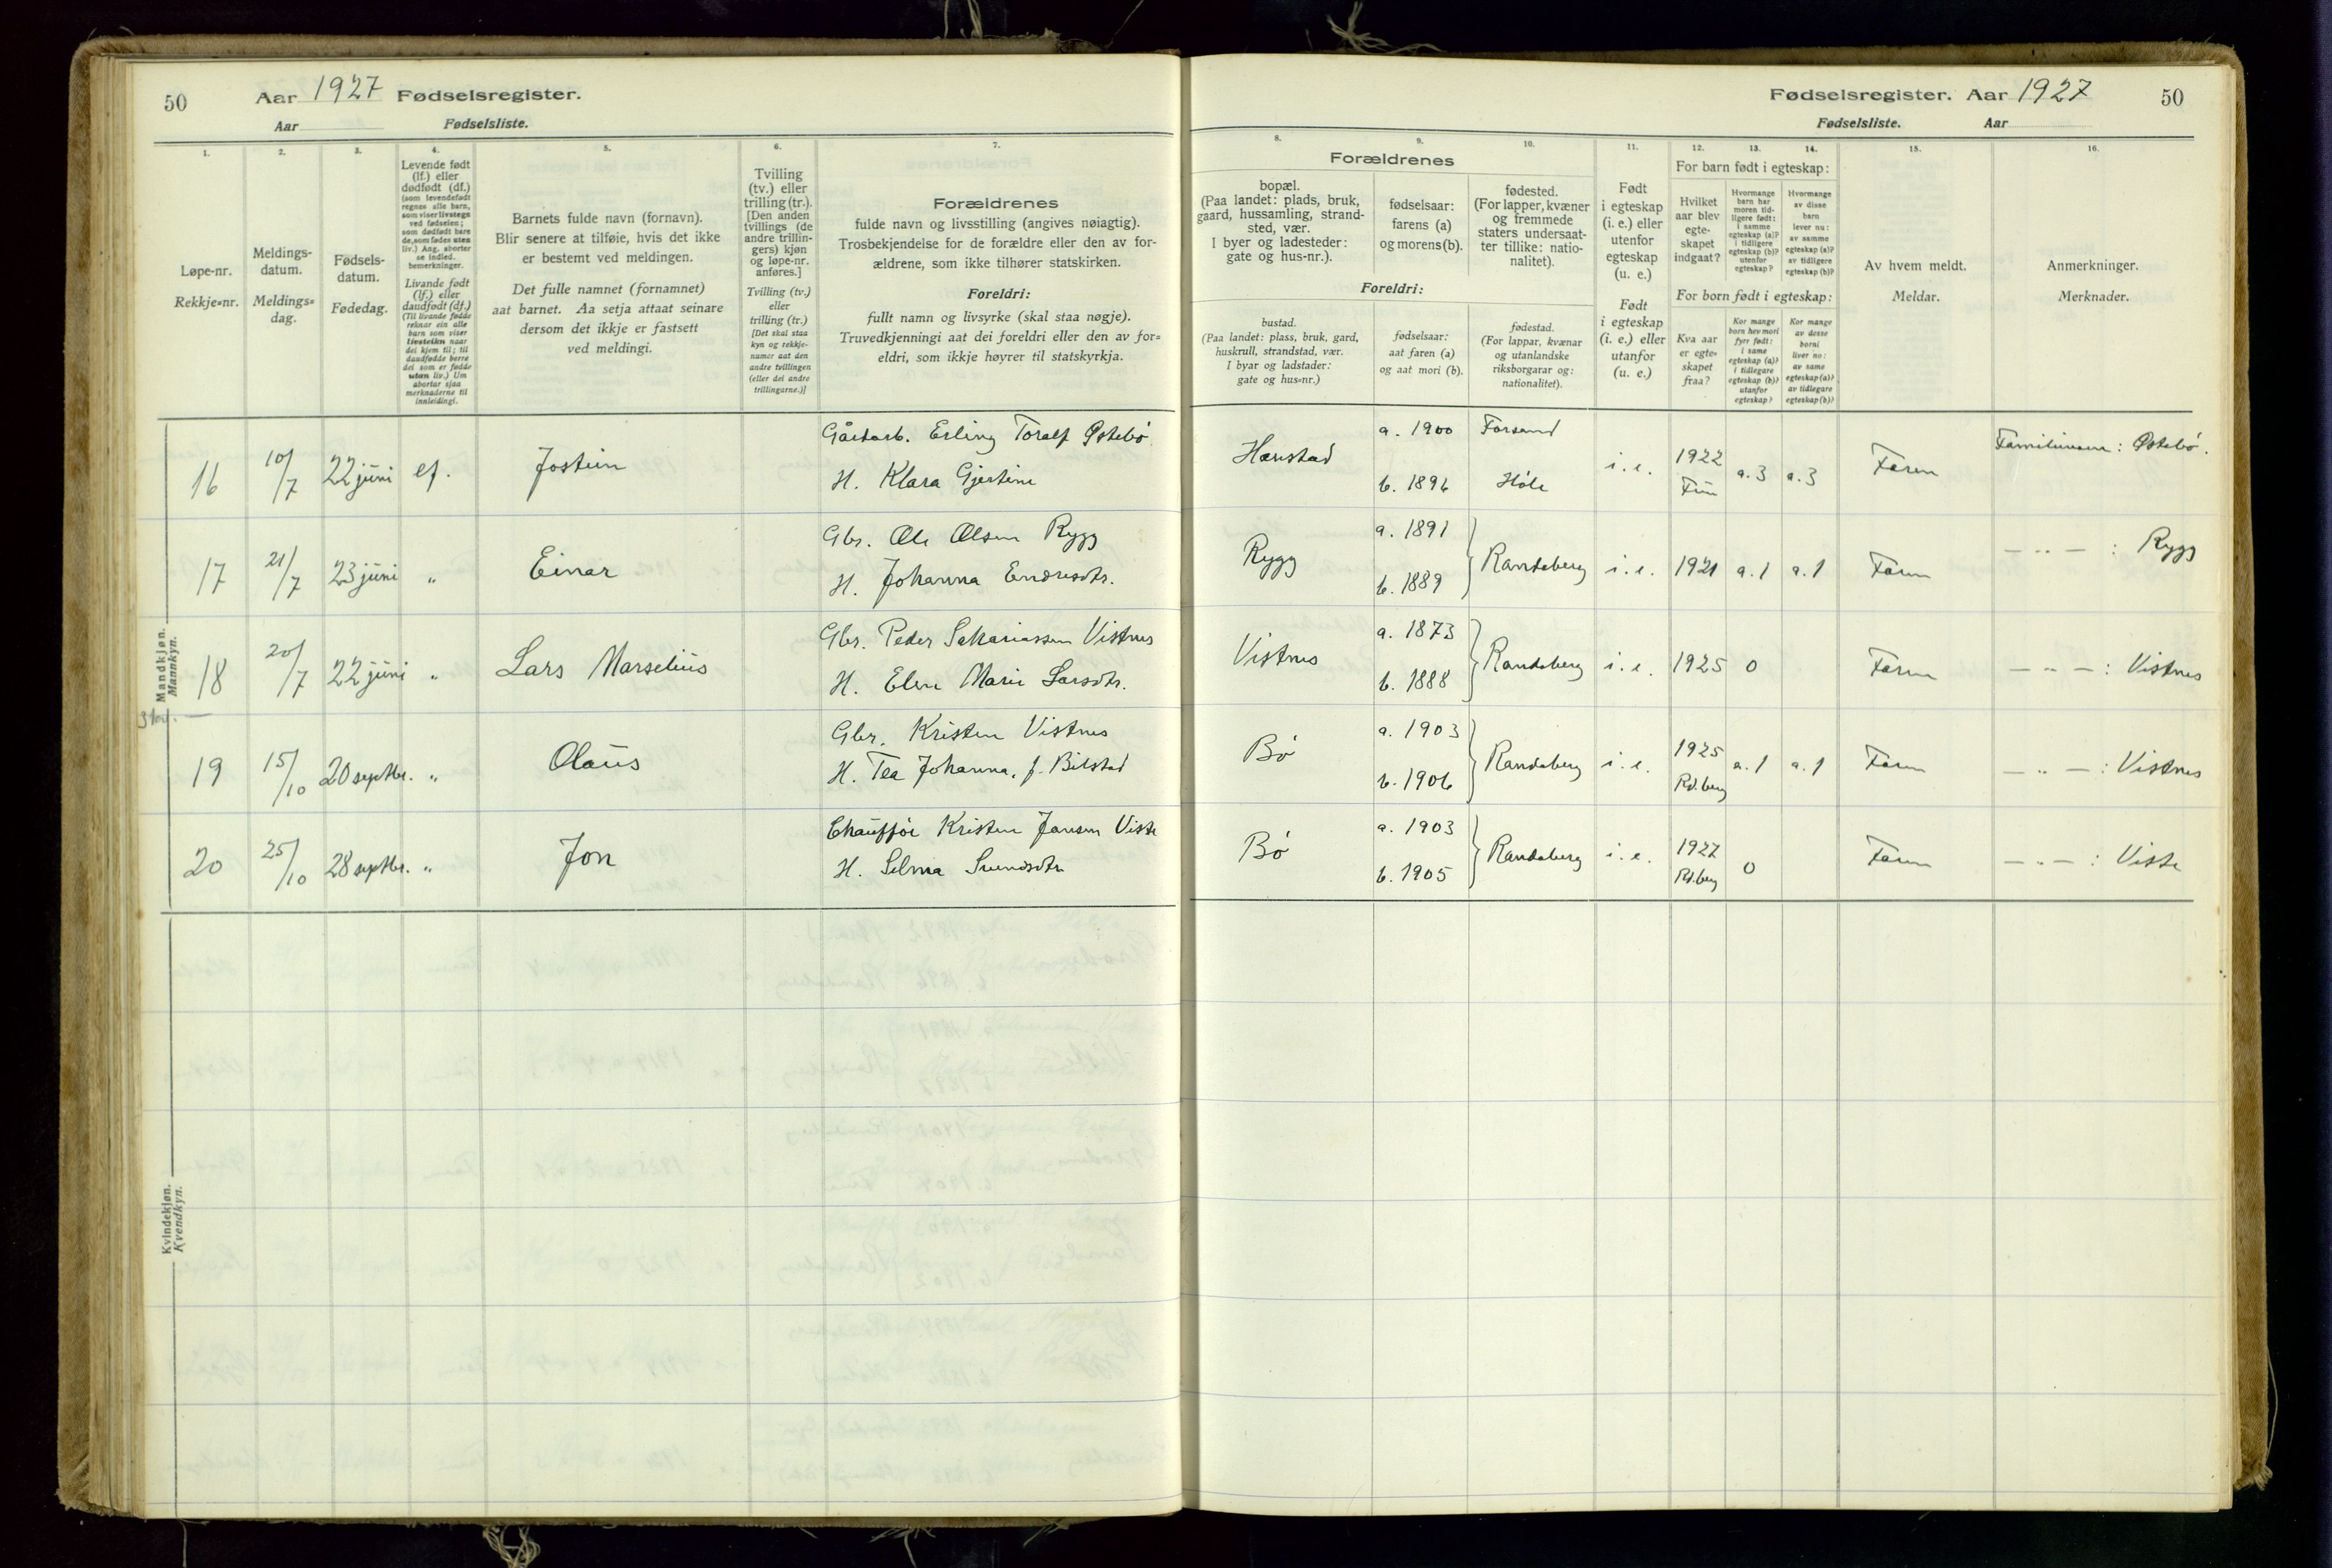 50
Aar 1927 Fødselsregister.
Aar Fødselsliste.
Fødselsregister. Aar 1927
50
Fødselsliste. Aar
1.
2.
3.
4.
5.
6.
7.
8.
9.
10.
11.
12.
13.
14.
15.
16.
Løpe-nr.
Rekkje=nr.
Meldings-
datum.
Meldings=
dag.
Fødsels-
datum.
Fødedag.
Levende født
(lf.) eller
dødfødt (df.)
(som levendefødt
regnes alle barn,
som viser livstegn
ved fødselen;
som dødfødt bare
de, som fødes uten
liv.) Ang. aborter
se indled.
bemerkninger.
Livande født
(lf.) eller
daudfødt (df.)
(Til livande fødde
reknar ein alle
barn som viser
livsteikn naar
dei kjem til; til
daudfødde berre
dei som er fødde
utan liv.) Um
abortar sjaa
merknaderne til
innleidingi.
Barnets fulde navn (fornavn).
Blir senere at tilføie, hvis det ikke
er bestemt ved meldingen.
Det fulle namnet (fornamnet)
aat barnet. Aa setja attaat seinare
dersom det ikkje er fastsett
ved meldingi.
Tvilling
(tv.) eller
trilling (tr.).
[Den anden
tvillings (de
andre trillin-
gers) kjøn
og løpe-nr.
anføres.]
Tvilling (tv.)
eller
trilling (tr.)
[Det skal staa
kyn og rekkje-
numer aat den
andre tvillingen
(eller dei andre
trillingarne.)]
Forældrenes
fulde navn og livsstilling (angives nøiagtig).
Trosbekjendelse for de forældre eller den av for-
ældrene, som ikke tilhører statskirken.
Foreldri:
fullt namn og livsyrke (skal staa nøgje).
Truvedkjenningi aat dei foreldri eller den av for=
eldri, som ikkje høyrer til statskyrkja.
Forældrenes
bopæl.
(Paa landet: plads, bruk,
gaard, hussamling, strand-
sted, vær.
I byer og ladesteder:
gate og hus-nr.).
fødselsaar:
farens (a)
og morens (b).
fødested.
(For lapper, kvæner
og fremmede
staters undersaat-
ter tillike: natio-
nalitet).
Foreldri:
bustad.
(Paa landet: plass, bruk, gard,
huskrull, strandstad, vær.
I byar og ladstader:
gate og hus=nr.)
fødselsaar:
aat faren (a)
og aat mori (b).
fødestad.
(For lappar, kvænar
og utanlandske
riksborgarar og:
nationalitet).
Født
i egteskap
(i. e.) eller
utenfor
egteskap
(u. e.)
Født
i egteskap
(i. e.) eller
utanfor
(u. e.)
For barn født i egteskap:
Hvilket
aar blev
egte-
skapet
indgaat?
Hvormange
barn har
moren tid-
ligere født:
i samme
egteskap (a)?
i tidligere
egteskap (b)?
utenfor
egteskap?
Hvormange
av disse
barn
lever nu:
av samme
egteskap (a)?
av tidligere
egteskap (b)?
For born født i egteskap:
Kva aar
er egte=
skapet
fraa?
Kor mange
born hev mori
fyrr født:
i same
egteskap (a)?
i tidlegare
egteskap (b)?
utanfor
egteskap?
Kor mange
av desse
borni
liver no:
av same
egteskap (a)?
av tidlegare
egteskap (b)?
Av hvem meldt.
Meldar.
Anmerkninger.
Merknader.
Mandkjøn.
Mannkyn.
16 10/7 22 juni lf. Jostein Gårdarb. Erling Toralf Østebö H. Klara Gjertine Harestad a. 1900 b. 1896 Forsand Höle i. e. 1922 a. 3 a. 3 Faren Familienavn: Østebö.
17 21/7 23 juni " Einar Gbr. Ole Olsen Rygg H. Johanna Endresdtr. Rygg a. 1891 b. 1889 } Randaberg i. e. 1921 a. 1 a. 1 Faren — " — : Rygg
18 20/7 22 juni " Lars Marselius Gbr. Peder Sakariassen Vistnes H. Elen Marie Larsdtr. Vistnes a. 1873 b. 1888 } Randaberg i. e. 1925 0 Faren — " — : Vistnes
19 15/10 20 septbr. " Olaus Gbr. Kristen Vistnes H. Tea Johanna, f. Bilstad Bö a. 1903 b. 1906 } Randaberg i. e. 1925 Rd.berg a. 1 a. 1 Faren — " — : Vistnes
20 25/10 28 septbr. " Jon Chaufför Kristen Jansen Viste H. Selma Svendsdtr Bö a. 1903 b. 1905 } Randaberg i. e. 1927 Rd.berg 0 Faren — " — : Viste
Kvindekjøn.
Kvendkyn.